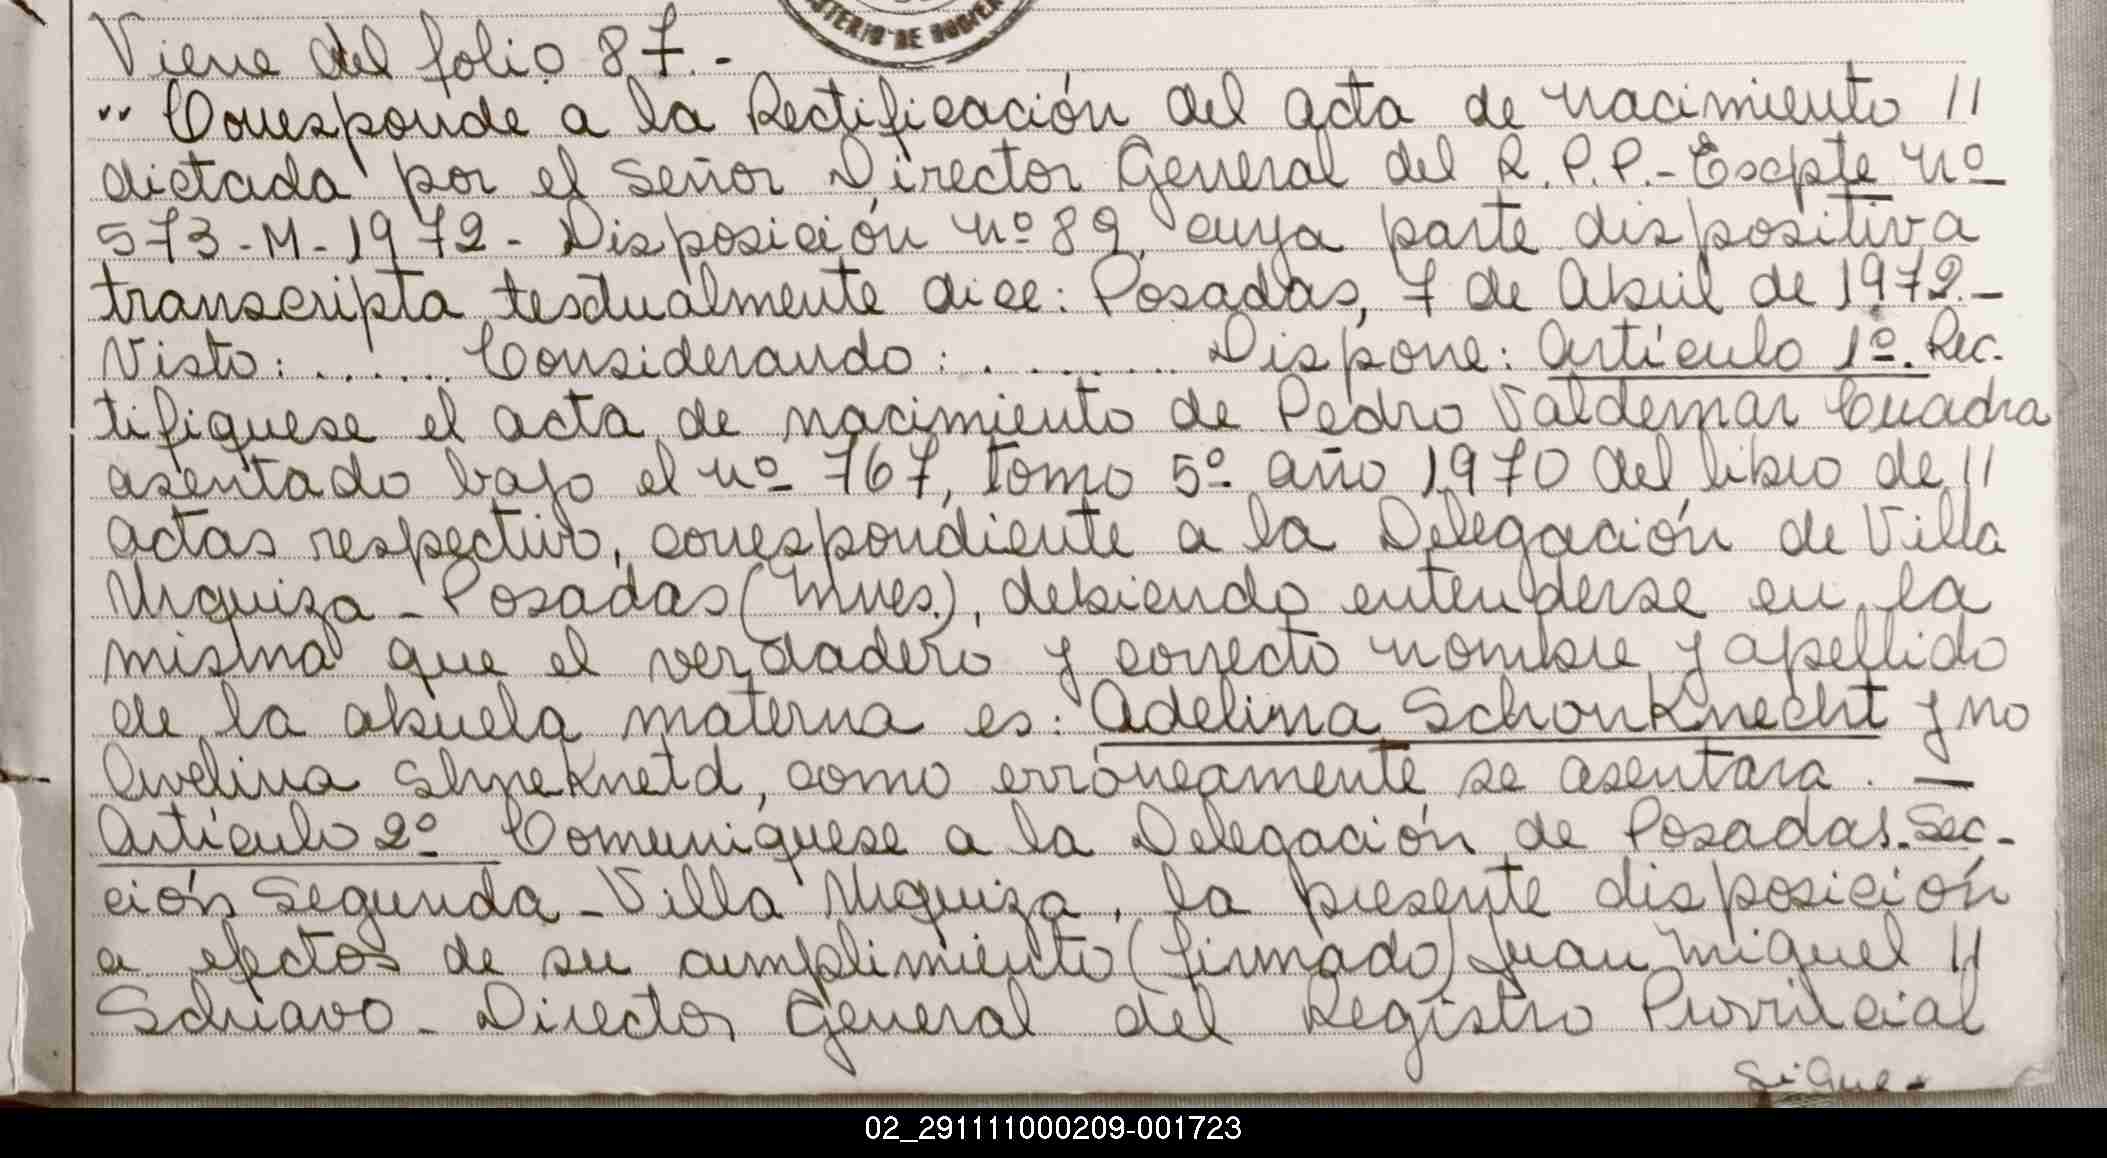 MINISTERIO DE GOBIER
Viene del folio 87.-
"Corresponde a la Rectificación del acta de nacimiento //
dictada por el Señor Director General del R.P.P.- Escpte nº
573-M-1972- Disposición nº 89, cuya parte dispositiva
transcripta testualmente dice: Posadas, 7 de Abril de 1972.-
Visto: ....... Considerando: ......... Dispone: Artículo 1º. Rec-
tifiquese el acta de nacimiento de Pedro Valdemar Cuadra
asentado bajo el nº 767, tomo 5º año 1970 del libro de //
actas respectivo, correspondiente a la Delegación de Villa
Urquiza - Posadas (Mnes.), debiendo entenderse en la
misma que el verdadero y correcto nombre y apellido
de la abuela materna es: Adelina SchonKnecht y no
Avelina ShneKnetd, como erróneamente se asentara. —
Artículo 2º Comuníquese a la Delegación de Posadas. Sec-
ción Segunda - Villa Urquiza, la presente disposición
a efectos de su cumplimiento (firmado) Juan Miguel //
Schiavo - Director General del Registro Provincial
Sigue-
02_291111000209-001723